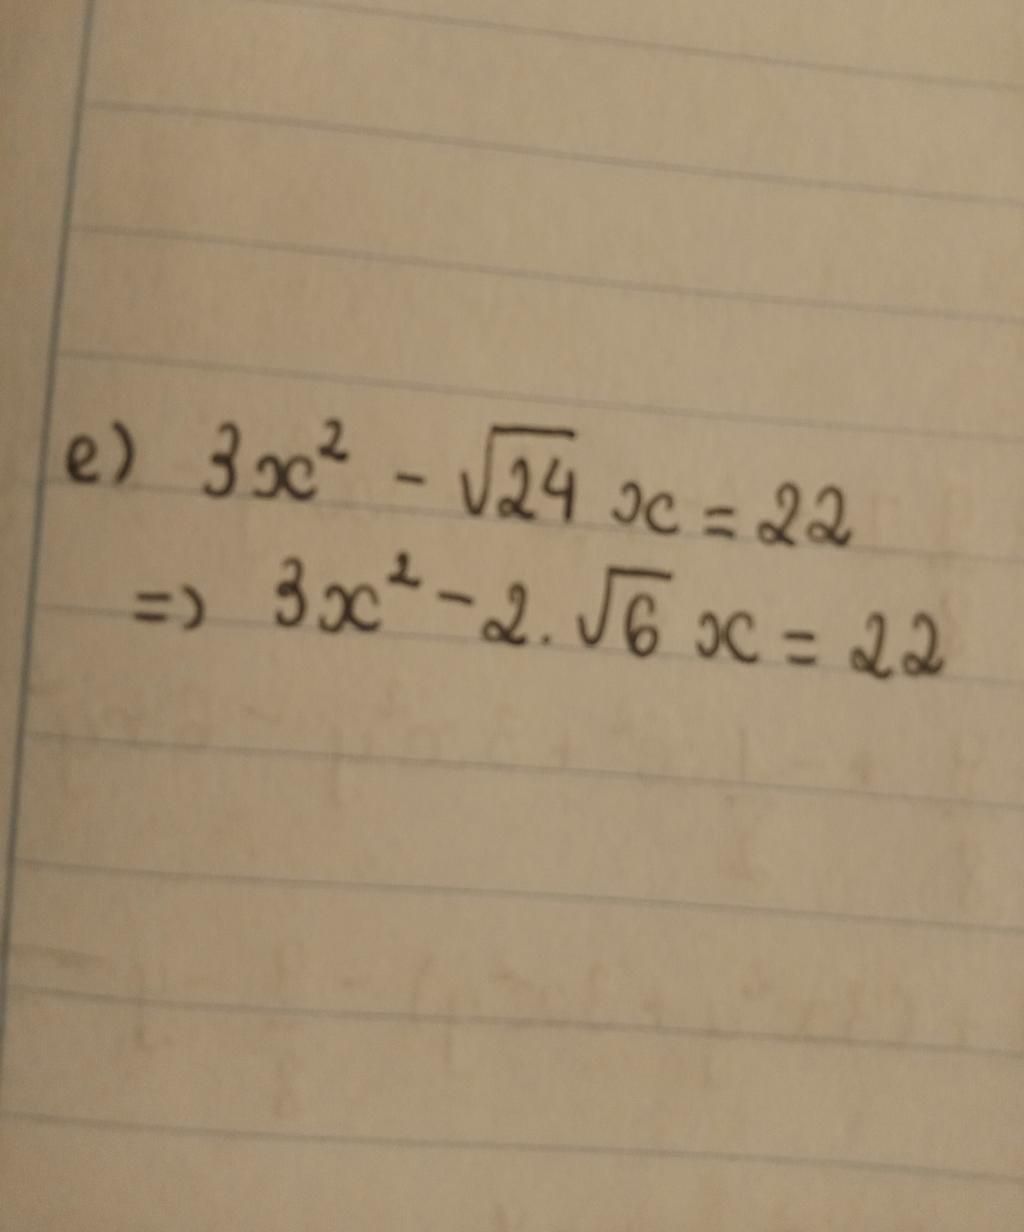 e) 3x² - √24 x = 22
=> 3x² - 2. √6 x = 22